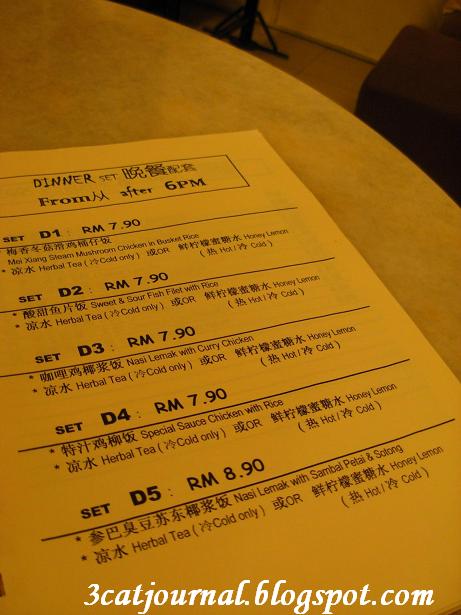 DINNER SET 晚餐配套
From从 after 6PM
SET D1 : RM 7.90
* 梅香冬菇滑鸡桶仔饭
Mei Xiang Steam Mushroom Chicken in Busket Rice
* 凉水 Herbal Tea (冷Cold only) 或OR 鲜柠檬蜜糖水 Honey Lemon
(热 Hot / 冷 Cold)
SET D2 : RM 7.90
* 酸甜鱼片饭 Sweet & Sour Fish Filet with Rice
* 凉水 Herbal Tea (冷Cold only) 或OR 鲜柠檬蜜糖水 Honey Lemon
(热 Hot / 冷 Cold)
SET D3 : RM 7.90
* 咖哩鸡椰浆饭 Nasi Lemak with Curry Chicken
* 凉水 Herbal Tea (冷Cold only) 或OR 鲜柠檬蜜糖水 Honey Lemon
(热 Hot / 冷 Cold)
SET D4 : RM 7.90
* 特汁鸡柳饭 Special Sauce Chicken with Rice
* 凉水 Herbal Tea (冷Cold only) 或OR 鲜柠檬蜜糖水 Honey Lemon
(热 Hot / 冷 Cold)
SET D5 : RM 8.90
* 参巴臭豆苏东椰浆饭 Nasi Lemak with Sambal Petai & Sotong
* 凉水 Herbal Tea (冷Cold only) 或OR 鲜柠檬蜜糖水 Honey Lemon
(热 Hot / 冷 Cold)
3catjournal.blogspot.com